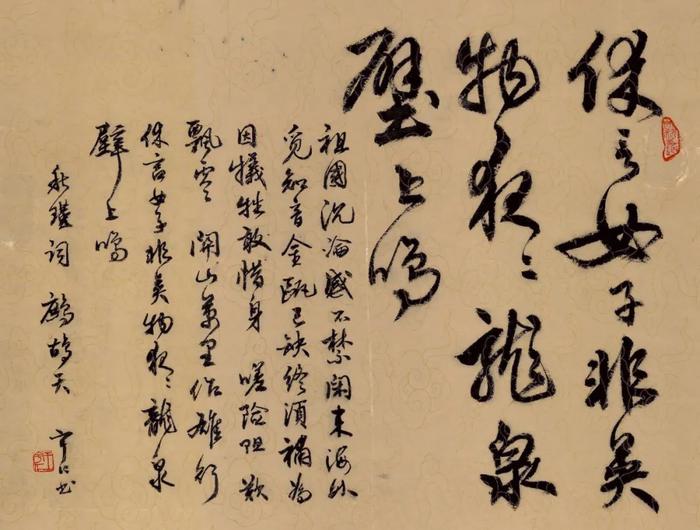 休言女子非英
物夜〻龍泉
壁上鳴
祖國沉淪感不禁閑来海外
覓知音金甌已缺終須補為
国犧牲敢惜身 嗟險阻歎
飄零 關山萬里作雄行
休言女子非英物夜〻龍泉
壁上鳴
秋瑾词 鷓鴣天
书